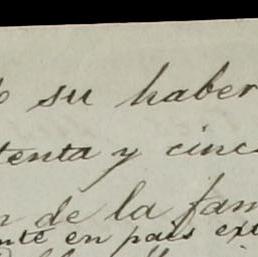 su haber
tenta y cinc
de la fam
ente en pais ext